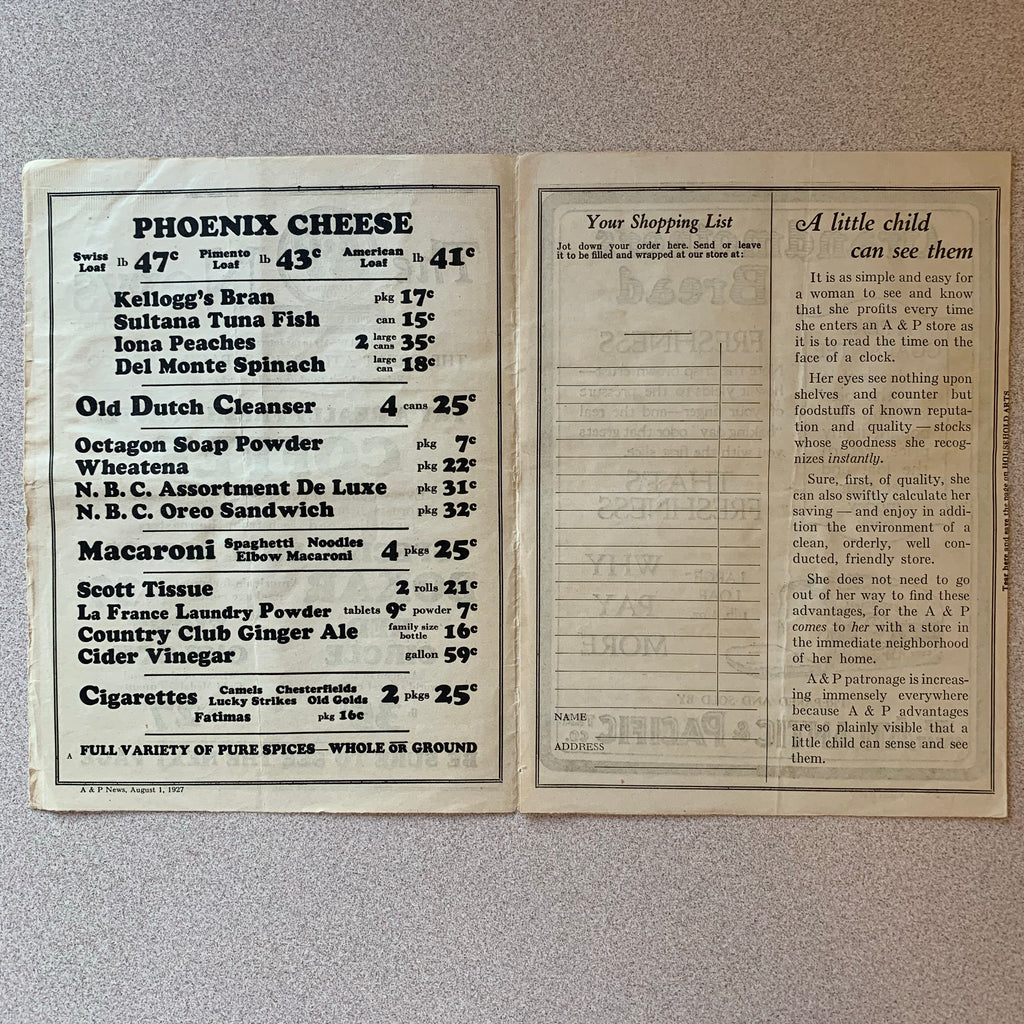 PHOENIX CHEESE
Swiss Loaf lb 47c Pimento Loaf lb 43c American Loaf lb 41c
Kellogg's Bran pkg 17c
Sultana Tuna Fish can 15c
Iona Peaches 2 large cans 35c
Del Monte Spinach large can 18c
Old Dutch Cleanser 4 cans 25c
Octagon Soap Powder pkg 7c
Wheatena pkg 22c
N. B. C. Assortment De Luxe pkg 31c
N. B. C. Oreo Sandwich pkg 32c
Macaroni Spaghetti Noodles Elbow Macaroni 4 pkgs 25c
Scott Tissue 2 rolls 21c
La France Laundry Powder tablets 9c powder 7c
Country Club Ginger Ale family size bottle 16c
Cider Vinegar gallon 59c
Cigarettes Camels Chesterfields Lucky Strikes Old Golds 2 pkgs 25c
Fatimas pkg 16c
A FULL VARIETY OF PURE SPICES—WHOLE OR GROUND
A & P News, August 1, 1927
Your Shopping List
Jot down your order here. Send or leave
it to be filled and wrapped at our store at:
NAME
ADDRESS
A little child
can see them
It is as simple and easy for
a woman to see and know
that she profits every time
she enters an A & P store as
it is to read the time on the
face of a clock.
Her eyes see nothing upon
shelves and counter but
foodstuffs of known reputa-
tion and quality — stocks
whose goodness she recog-
nizes instantly.
Sure, first, of quality, she
can also swiftly calculate her
saving — and enjoy in addi-
tion the environment of a
clean, orderly, well con-
ducted, friendly store.
She does not need to go
out of her way to find these
advantages, for the A & P
comes to her with a store in
the immediate neighborhood
of her home.
A & P patronage is increas-
ing immensely everywhere
because A & P advantages
are so plainly visible that a
little child can sense and see
them.
Tear here and save the page on HOUSEHOLD ARTS